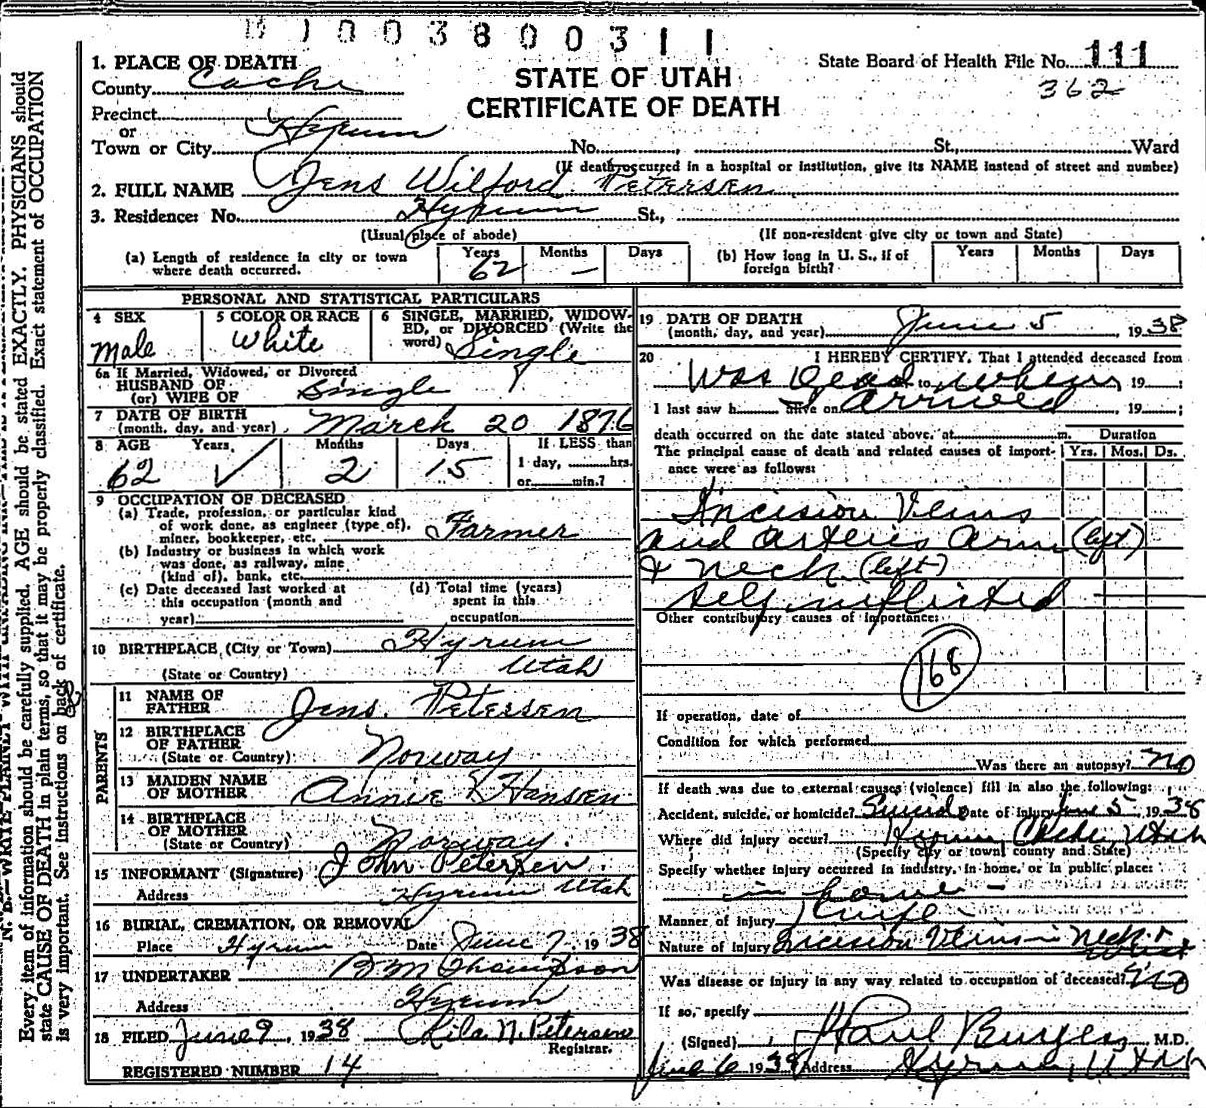 1003800311
STATE OF UTAH
CERTIFICATE OF DEATH
State Board of Health File No. 111
362
1. PLACE OF DEATH
County Cache
Precinct
or
Town or City Hyrum No. St., Ward
(If death occurred in a hospital or institution, give its NAME instead of street and number)
2. FULL NAME Jens Wilford Petersen
3. Residence: No. Hyrum St.,
(Usual place of abode) (If non-resident give city or town and State)
(a) Length of residence in city or town where death occurred. Years 62 Months – Days
(b) How long in U. S., if of foreign birth? Years Months Days
PERSONAL AND STATISTICAL PARTICULARS
4 SEX Male
5 COLOR OR RACE White
6 SINGLE, MARRIED, WIDOWED, or DIVORCED (Write the word) Single
6a If Married, Widowed, or Divorced
HUSBAND OF
(or) WIFE OF Single
7 DATE OF BIRTH
(month, day, and year) March 20 1876
8 AGE Years 62 Months 2 Days 15 If LESS than 1 day, hrs. or min.?
9 OCCUPATION OF DECEASED
(a) Trade, profession, or particular kind of work done, as engineer (type of), miner, bookkeeper, etc. Farmer
(b) Industry or business in which work was done, as railway, mine (kind of), bank, etc.
(c) Date deceased last worked at this occupation (month and year)
(d) Total time (years) spent in this occupation
10 BIRTHPLACE (City or Town) Hyrum
(State or Country) Utah
PARENTS
11 NAME OF FATHER Jens. Petersen
12 BIRTHPLACE OF FATHER (State or Country) Norway
13 MAIDEN NAME OF MOTHER Annie E Hansen
14 BIRTHPLACE OF MOTHER (State or Country) Norway.
15 INFORMANT (Signature) John Petersen
Address Hyrum Utah
16 BURIAL, CREMATION, OR REMOVAL
Place Hyrum Date June 7, 1938
17 UNDERTAKER B M Thompson
Address Hyrum
18 FILED June 9, 1938 Rila N. Petersen
Registrar.
REGISTERED NUMBER 14
19 DATE OF DEATH
(month, day, and year) June 5 1938
20 I HEREBY CERTIFY, That I attended deceased from
Was Dead to when 19 ;
I last saw h alive on I arrived, 19 ;
death occurred on the date stated above, at m. Duration
The principal cause of death and related causes of importance were as follows: Yrs. Mos. Ds.
Incision Veins
and arteries arm (left)
& neck (left)
self inflicted
Other contributory causes of importance:
168
If operation, date of
Condition for which performed
Was there an autopsy? No
If death was due to external causes (violence) fill in also the following:
Accident, suicide, or homicide? Suicide Date of injury June 5, 1938
Where did injury occur? Hyrum, Cache, Utah
(Specify city or town, county and State)
Specify whether injury occurred in industry, in home, or in public place:
in home –
Manner of injury Knife –
Nature of injury Incision Veins in Neck & Wrist
Was disease or injury in any way related to occupation of deceased? No
If so, specify
(Signed) Paul Burgess, M.D.
June 6 1938 Address Hyrum, Utah
Every item of information should be carefully supplied. AGE should be stated EXACTLY. PHYSICIANS should
state CAUSE OF DEATH in plain terms, so that it may be properly classified. Exact statement of OCCUPATION
is very important. See instructions on back of certificate.